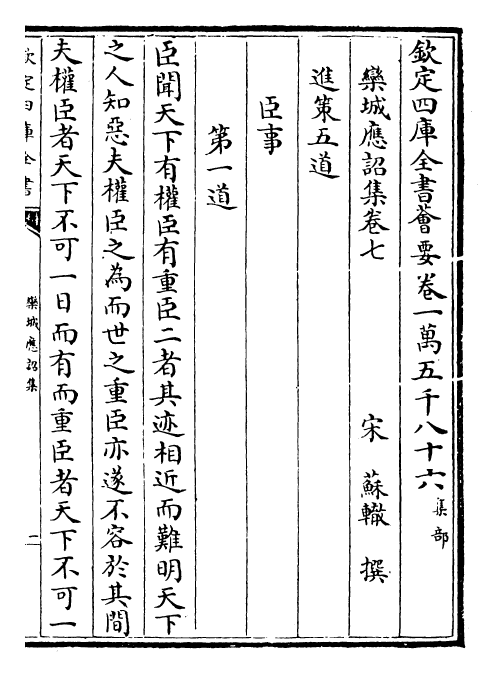 欽定四庫全書薈要卷一萬五千八十六集部
欒城應詔集卷七 宋 蘇轍 撰
進策五道
臣事
第一道
臣聞天下有權臣有重臣二者其迹相近而難明天下
之人知惡夫權臣之為而世之重臣亦遂不容於其間
夫權臣者天下不可一日而有而重臣者天下不可一
欽定四庫全書
欒城應詔集